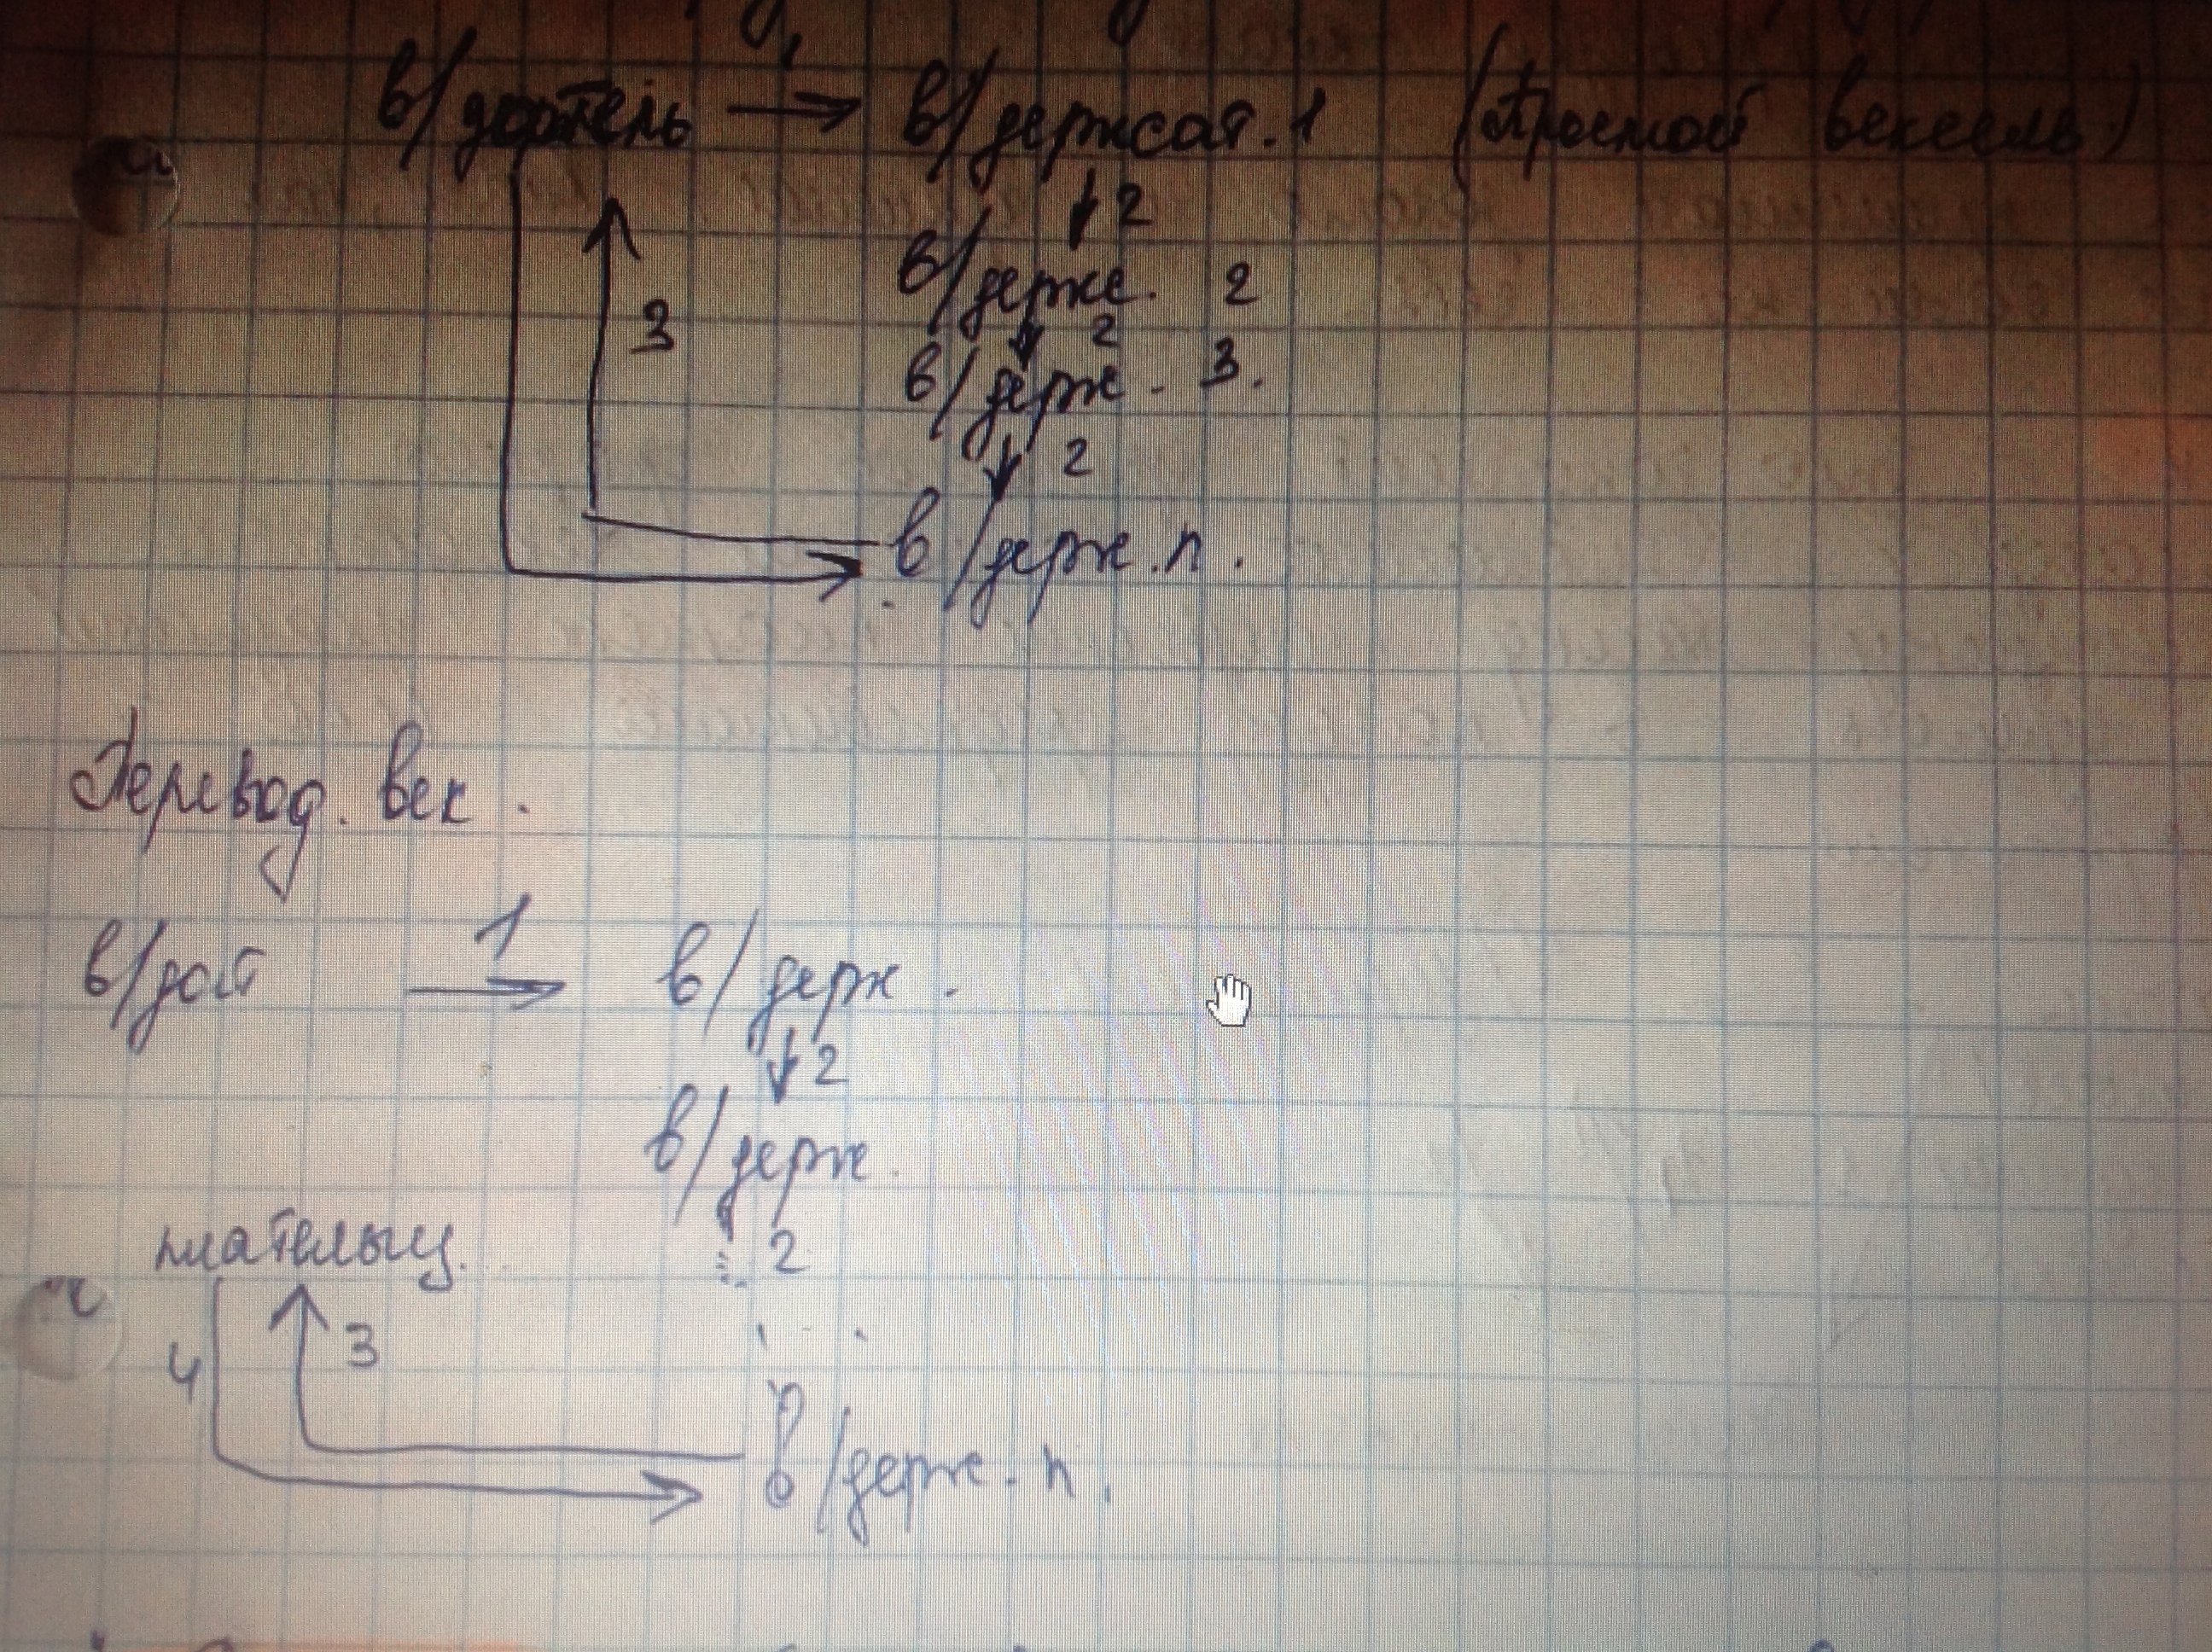 1
в/датель → в/держат. 1 (Простой вексель)
↓ 2
в/держ. 2
3
↓ 2
в/держ. 3.
↓ 2
в/держ. n.
Перевод. век.
1
в/дат → в/держ.
↓ 2
в/держ.
плательщ.
2
3
4
в/держ. n.